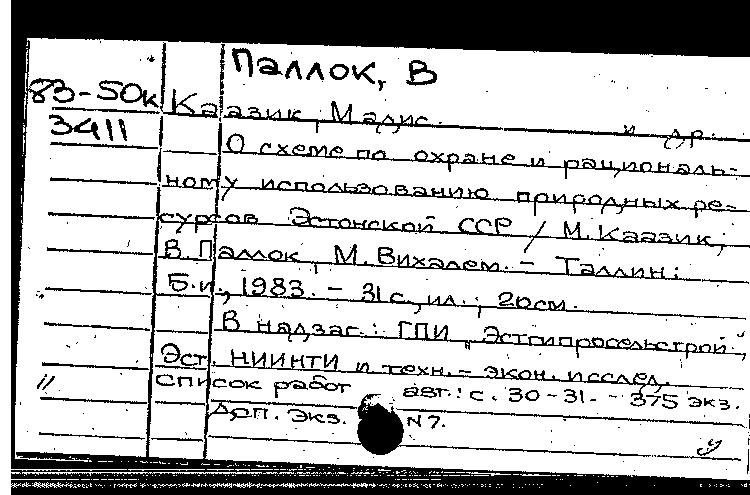 Паллок, В
83-50к Каазик, Мадис. и др.
3411
О схеме по охране и рациональ-
ному использованию природных ре-
сурсов Эстонской ССР / М. Каазик,
В. Паллок, М. Вихалем. - Таллин:
Б.и., 1983. - 31 с., ил.; 20см.
В надзаг.: ГПИ "Эстгипросельстрой",
Эст. НИИНТИ и техн.-экон. исслед.
Список работ авт.: с. 30-31. - 375 экз.
Доп. экз. N 7.